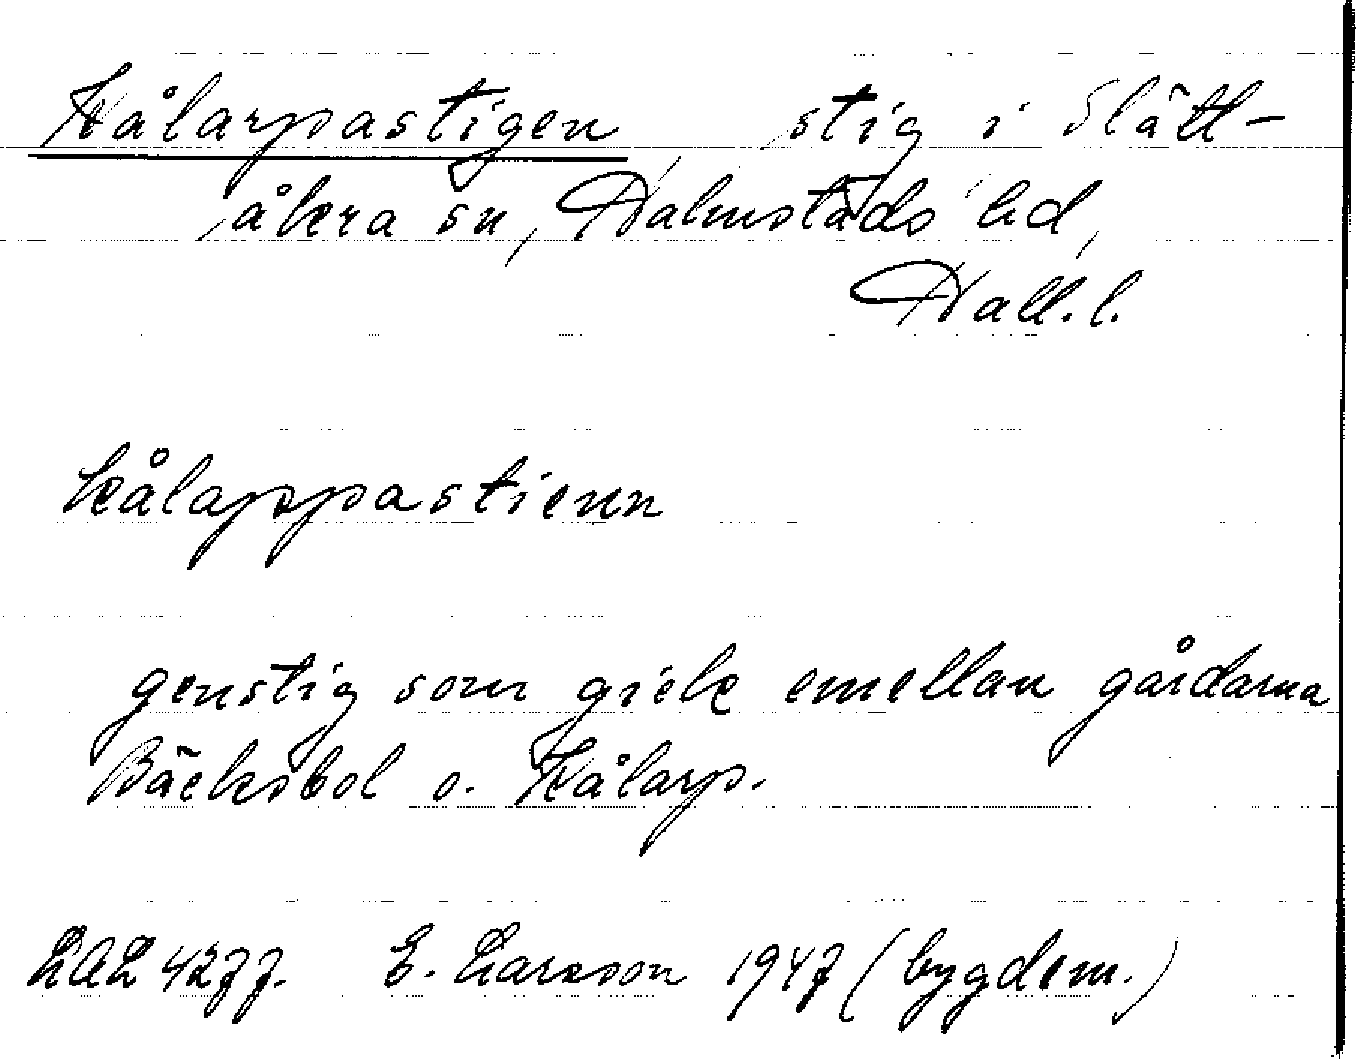 Kålarpastigen stig i Slätt-
åkra sn, Halmstads hd,
Hall. l.
kålappastienn
genstig som gick emellan gårdarna
Bäcksbol o. Kålarp.
LAL 4277. E. Larsson 1947 (bygdem.)